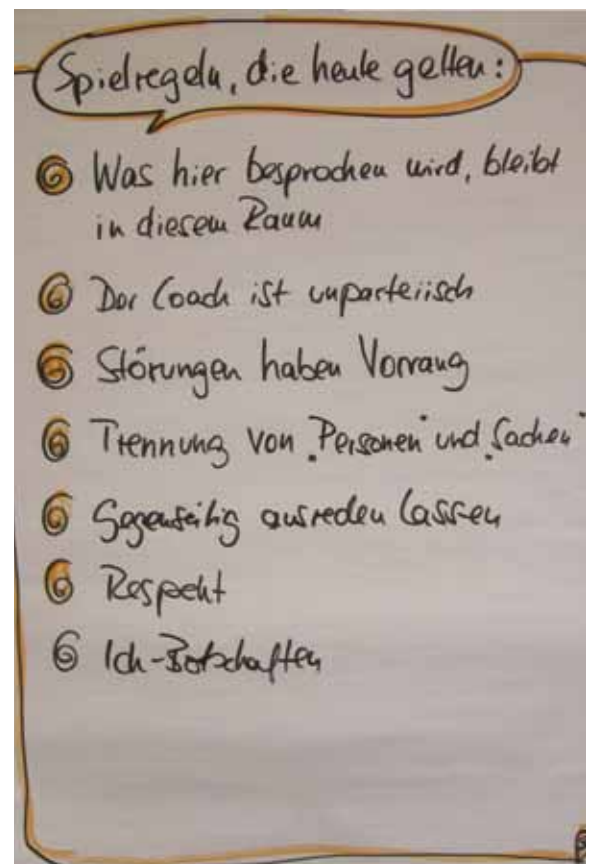 Spielregeln, die heute gelten:
Was hier besprochen wird, bleibt
in diesem Raum
Der Coach ist unparteiisch
Störungen haben Vorrang
Trennung von "Personen" und "Sachen"
Gegenseitig ausreden lassen
Respekt
Ich-Botschaften